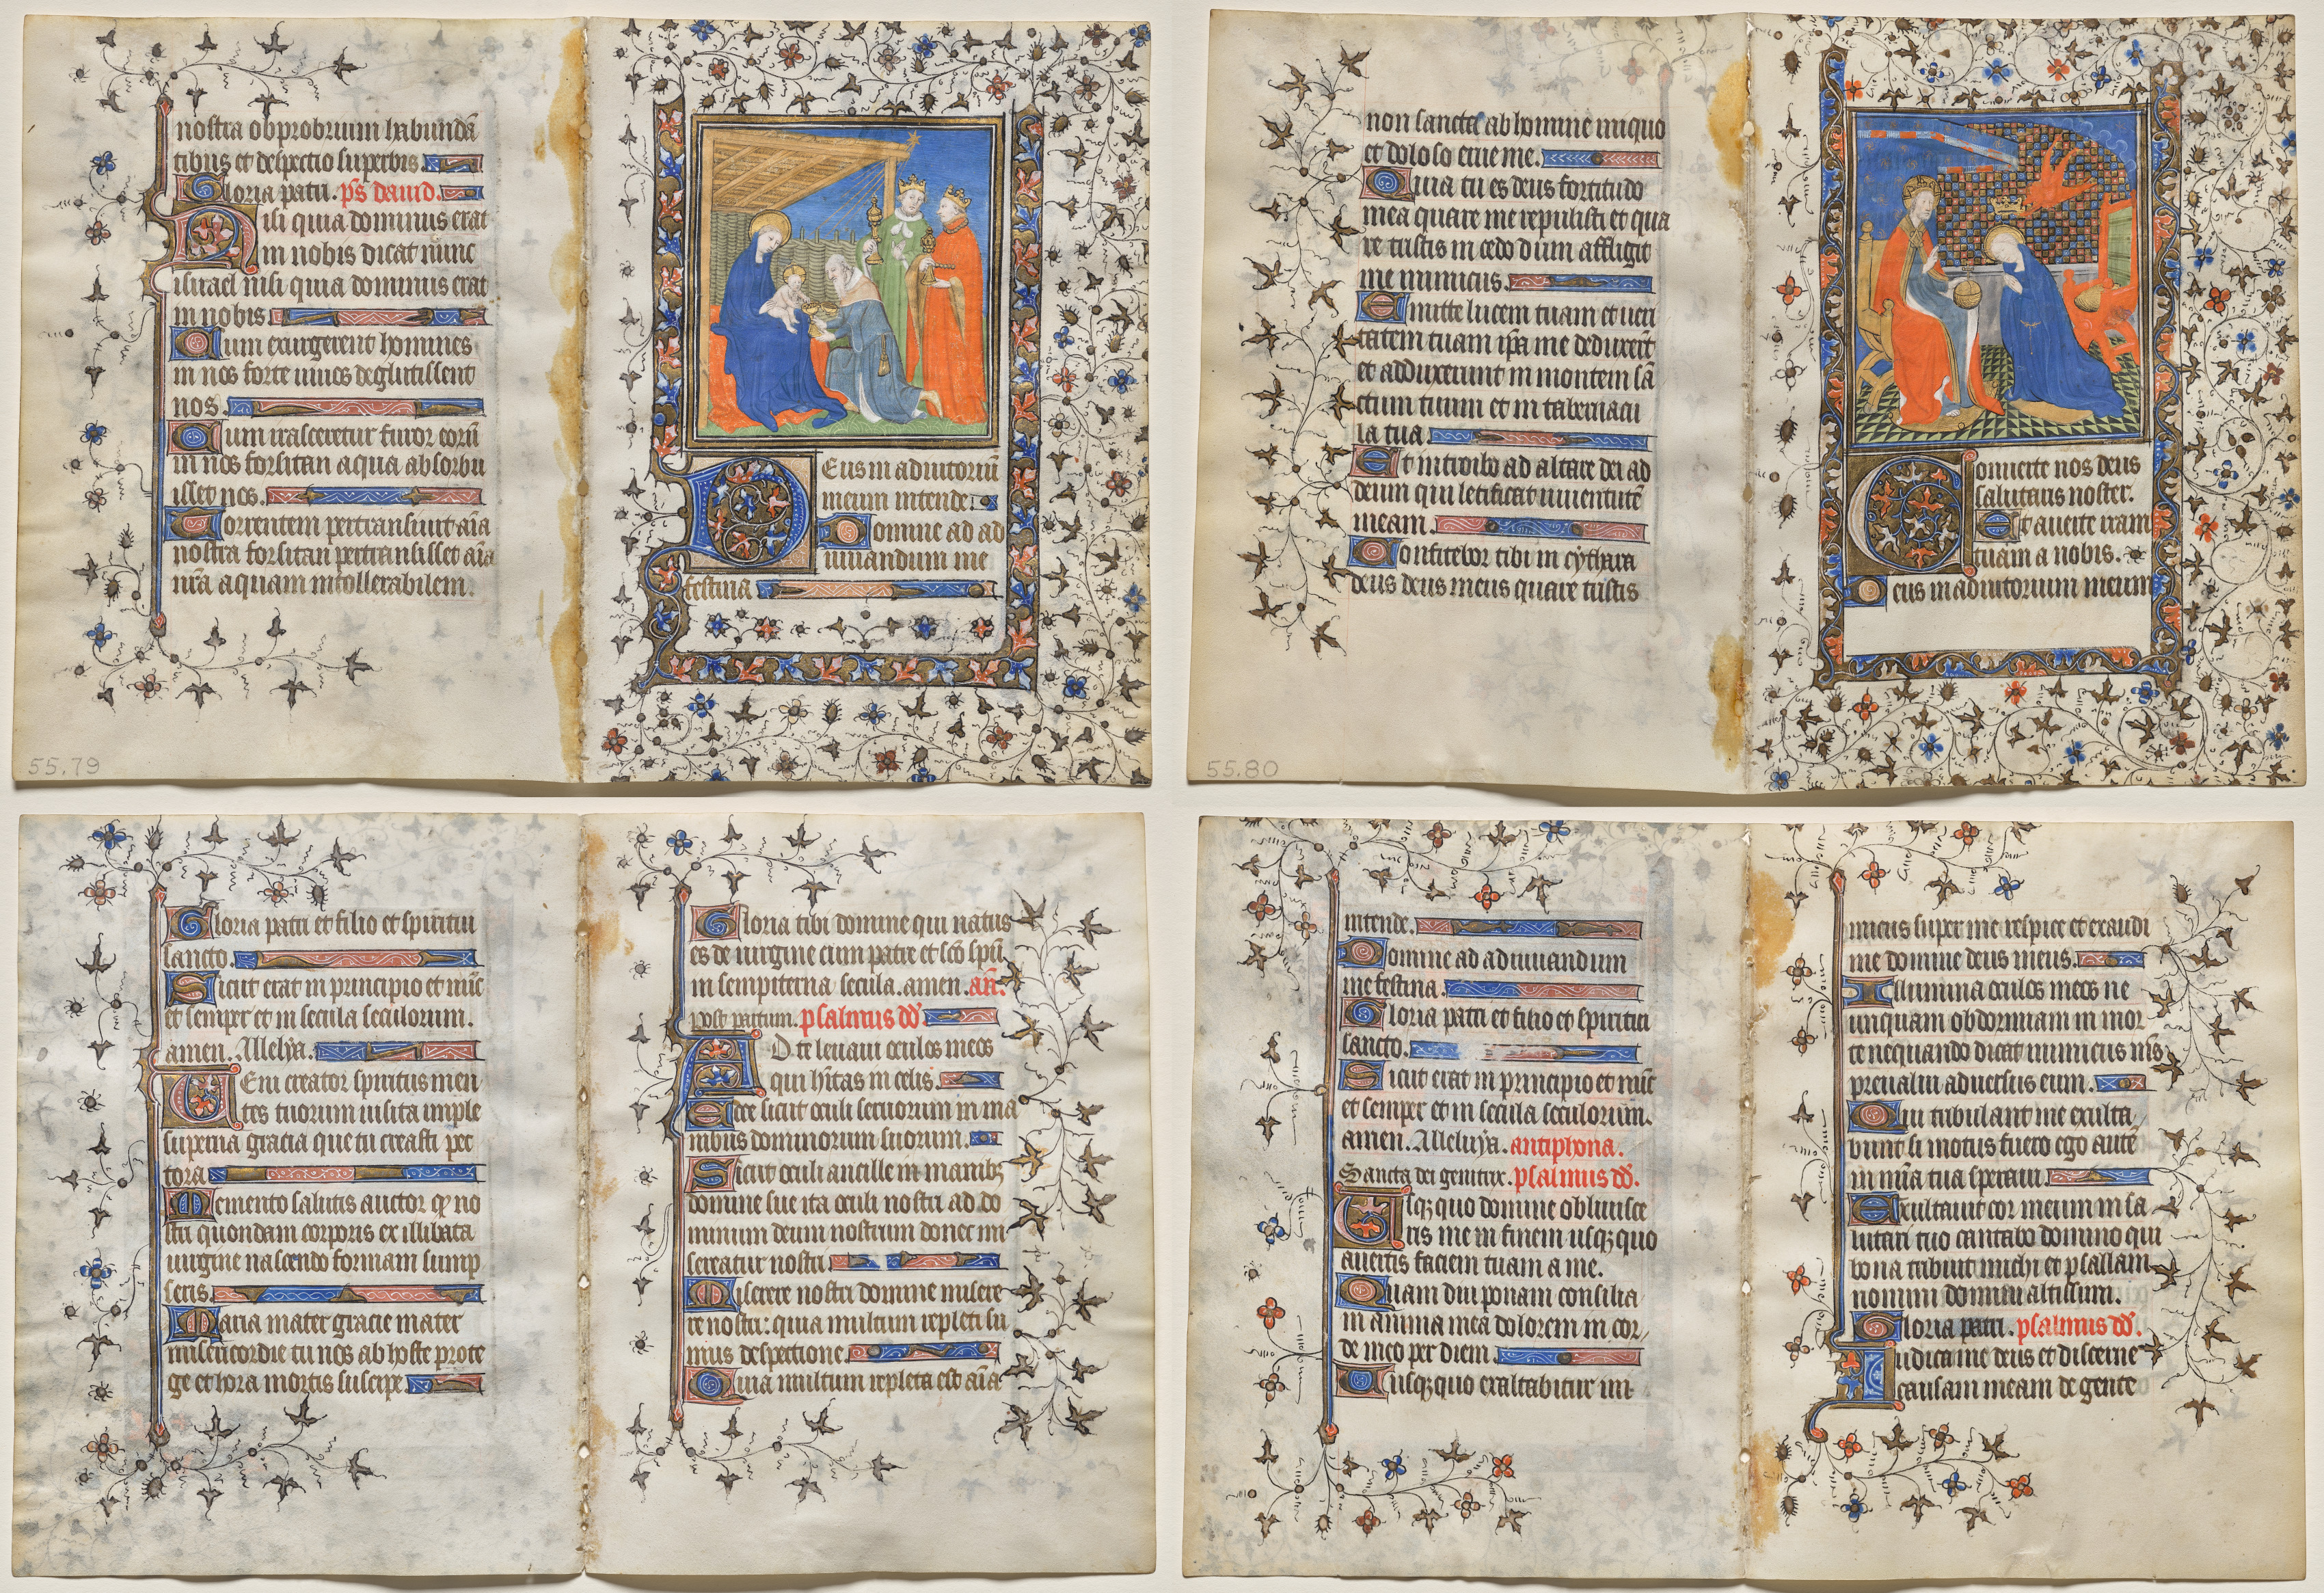 nostra obprobrium habundā
tibus et despectio superbis
Gloria patri. pS dauid.
Nisi quia dominus erat
in nobis dicat nunc
israel nisi quia dominus erat
in nobis
Cum exurgerent homines
in nos forte uiuos deglutissent
nos.
Cum irasceretur furor eorū
in nos forsitan aqua absorbu
isset nos.
Torrentem pertransiuit aīa
nostra forsitan pertransisset aīa
nrā aquam intollerabilem.
55.79
Deus in adiutoriū
meum intende
Domine ad ad
iuuandum me
festina
non sancta ab homine iniquo
et doloso erue me.
Quia tu es deus fortitudo
mea quare me repulisti et qua
re tristis incedo dum affligit
me inimicus.
Emitte lucem tuam et ueri
tatem tuam ipā me deduxerūt
et adduxerunt in montem sā
ctum tuum et in tabernacu
la tua.
Et introibo ad altare dei ad
deum qui letificat iuuentutē
meam.
Confitebor tibi in cythara
deus deus meus quare tristis
55.80
Conuerte nos deus
salutaris noster.
Et auerte iram
tuam a nobis.
Deus in adiutorium meum
Gloria patri et filio et spiritui
sancto.
Sicut erat in principio et nūc
et semper et in secula seculorum.
amen. Allelya.
Veni creator spiritus men
tes tuorum uisita imple
superna gracia que tu creasti pec
tora
Memento salutis auctor qꝫ no
stri quondam corporis ex illibata
uirgine nascendo formam sump
seris.
Maria mater gracie mater
misericordie tu nos ab hoste prote
ge et hora mortis suscipe.
Gloria tibi domine qui natus
es de uirgine cum patre et scō spū
in sempiterna secula. amen. an̄.
post partum. psalmus dd̄.
Ad te leuaui oculos meos
qui hītas in celis.
Ecce sicut oculi seruorum in ma
nibus dominorum suorum.
Sicut oculi ancille in manibꝫ
domine sue ita oculi nostri ad do
minum deum nostrum donec mi
sereatur nostri
Miserere nostri domine misere
re nostri: quia multum repleti su
mus despectione.
Quia multum repleta est aīa
intende.
Domine ad adiuuandum
me festina.
Gloria patri et filio et spiritui
sancto.
Sicut erat in principio et nūc
et semper et in secula seculorum.
amen. Alleluya. antiphona.
Sancta dei genitrix. psalmus dd̄.
Usqꝫ quo domine obliuisce
ris me in finem usqꝫ quo
auertis faciem tuam a me.
Quam diu ponam consilia
in anima mea dolorem in cor
de meo per diem
Usqꝫ quo exaltabitur ini
micus super me respice et exaudi
me domine deus meus.
Illumina oculos meos ne
unquam obdormiam in mor
te nequando dicat inimicus mīs
preualui aduersus eum.
Qui tribulant me exulta
bunt si motus fuero ego autē
in mīa tua speraui.
Exultauit cor meum in sa
lutari tuo cantabo domino qui
bona tribuit michi et psallam
nomini domini altissimi.
Gloria patri. psalmus dd̄.
Iudica me deus et discerne
causam meam de gente